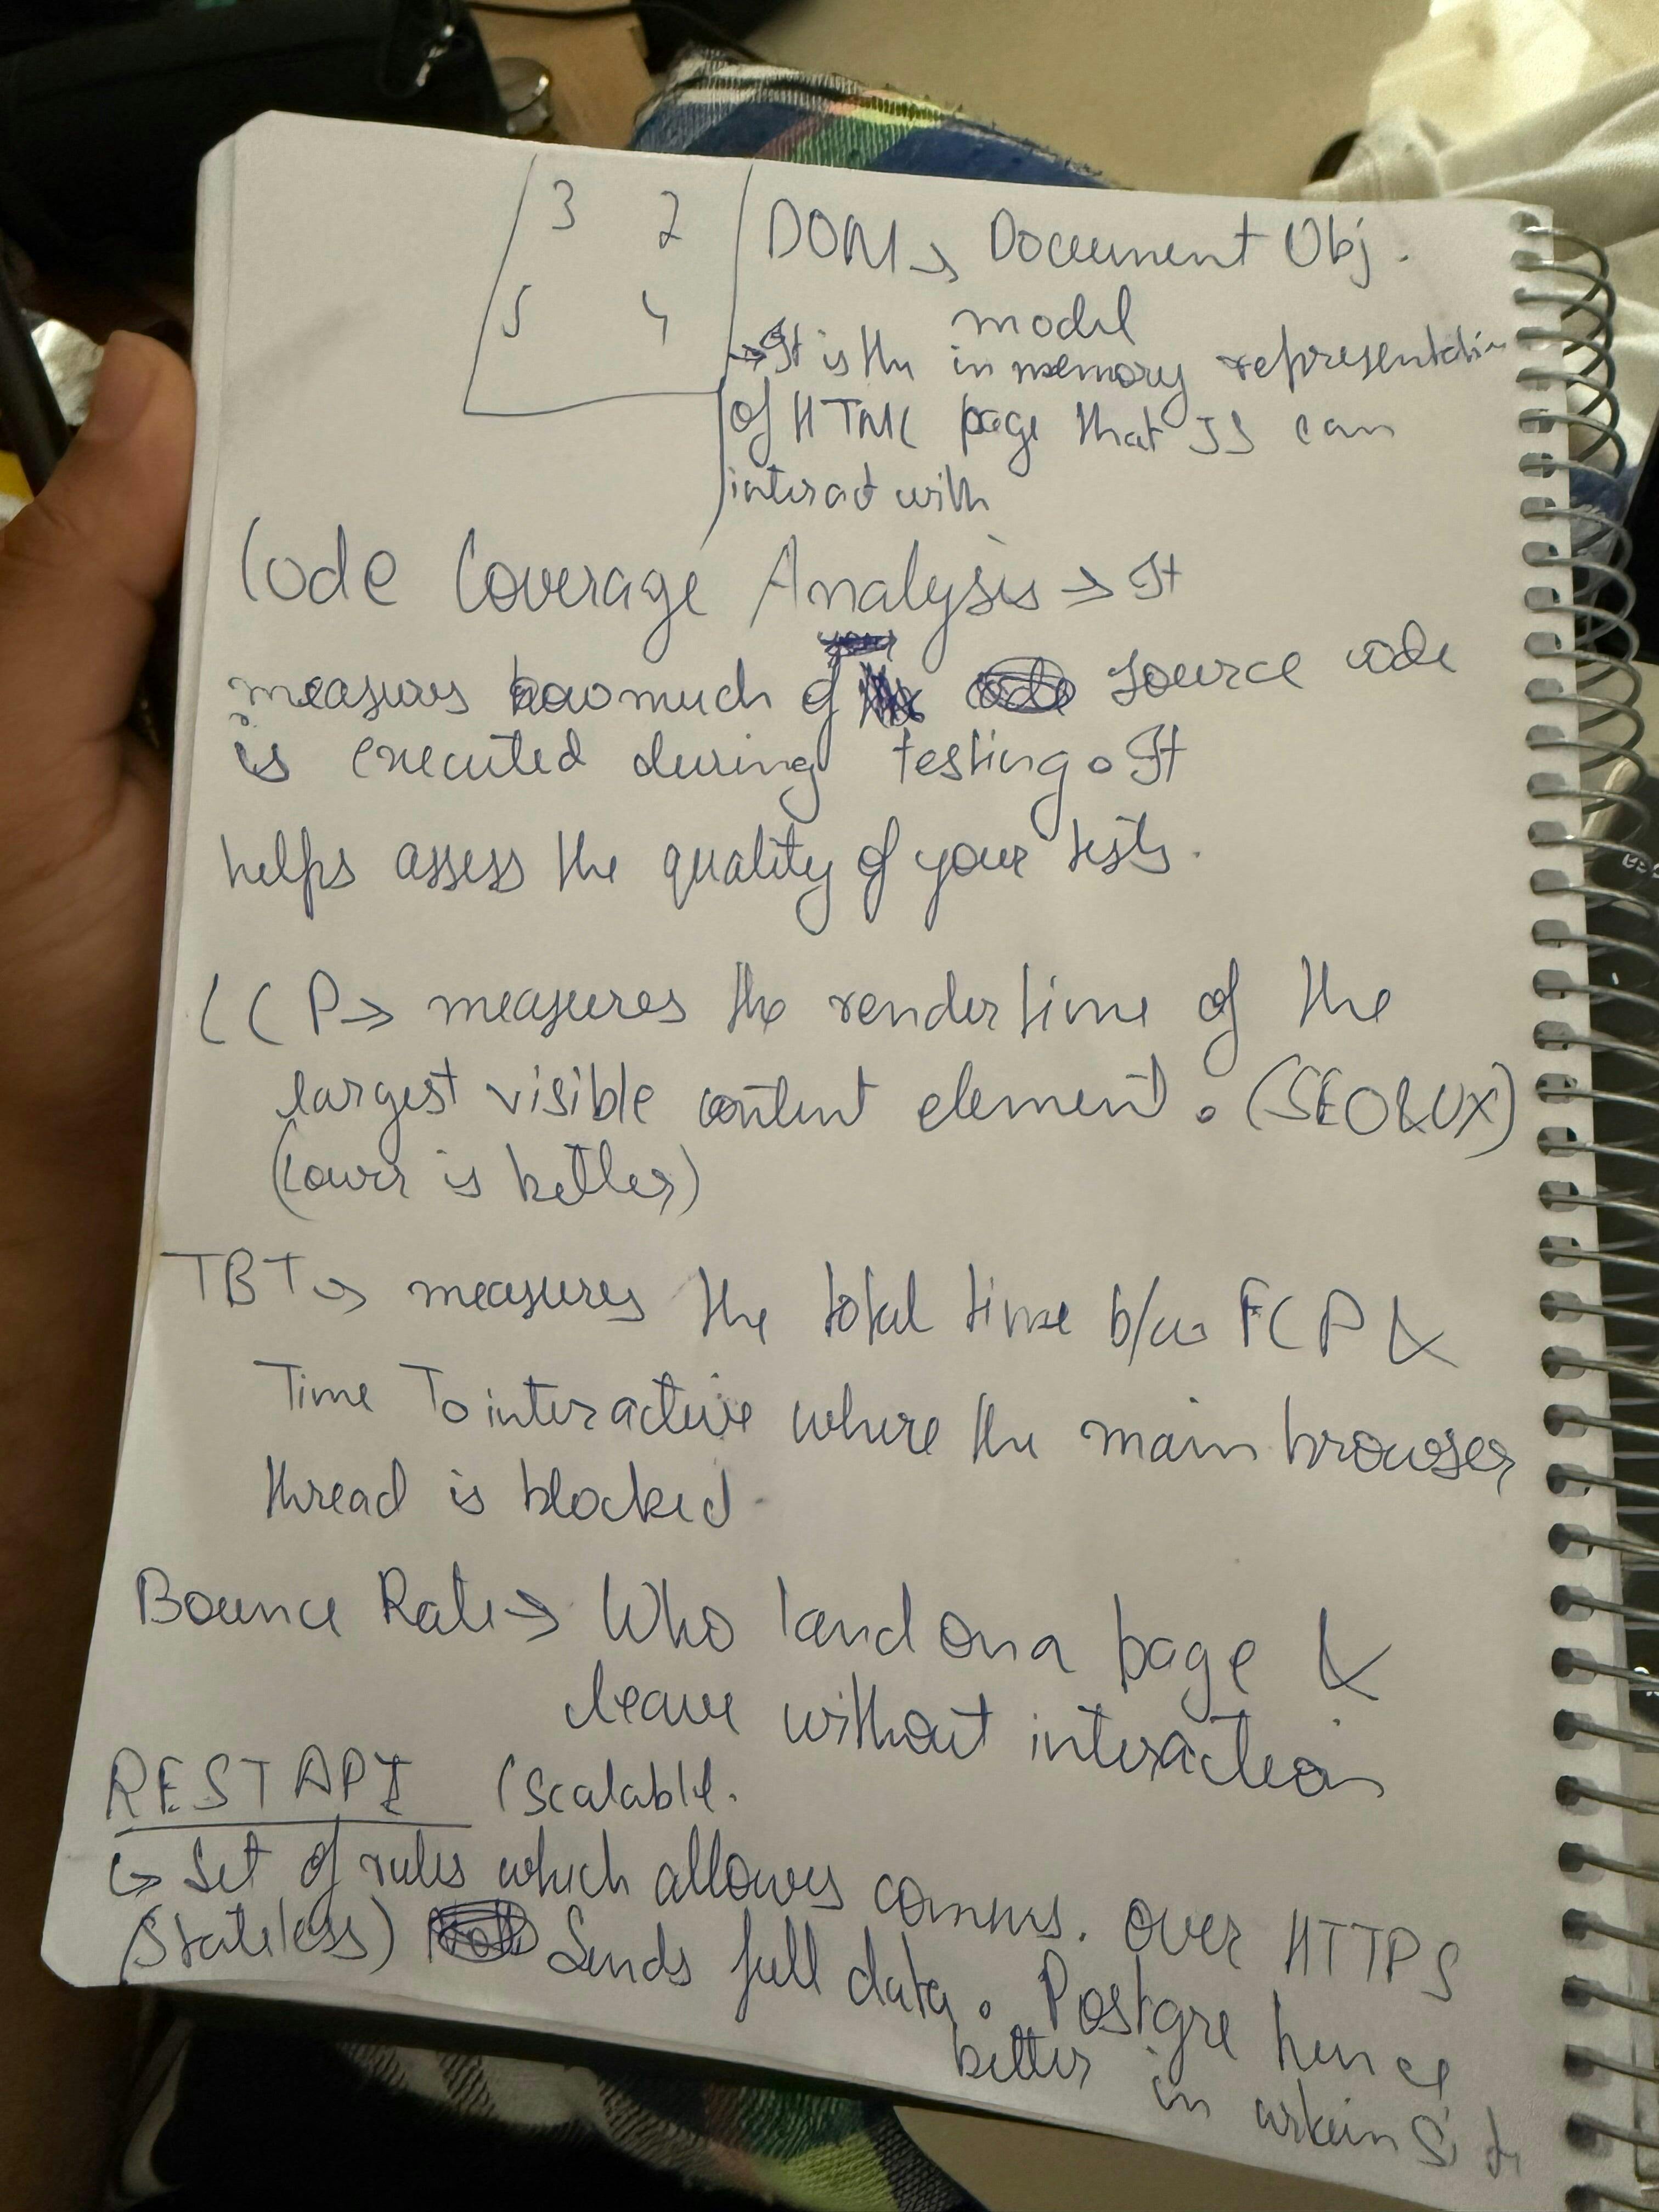 3 2
5 4
DOM → Document Obj.
model
→ It is the in memory representation
of HTML page that JS can
interact with
Code Coverage Analysis → It
measures how much of source code
is executed during testing. It
helps assess the quality of your tests.
LCP → measures the render time of the
largest visible content element. (SEO & UX)
(Lower is better)
TBT → measures the total time b/w FCP &
Time To interactive where the main browser
thread is blocked.
Bounce Rate → Who land on a page &
leave without interaction
REST API (Scalable.
↳ Set of rules which allows comms. over HTTPS
(Stateless) Sends full data. Postgre hence
better in